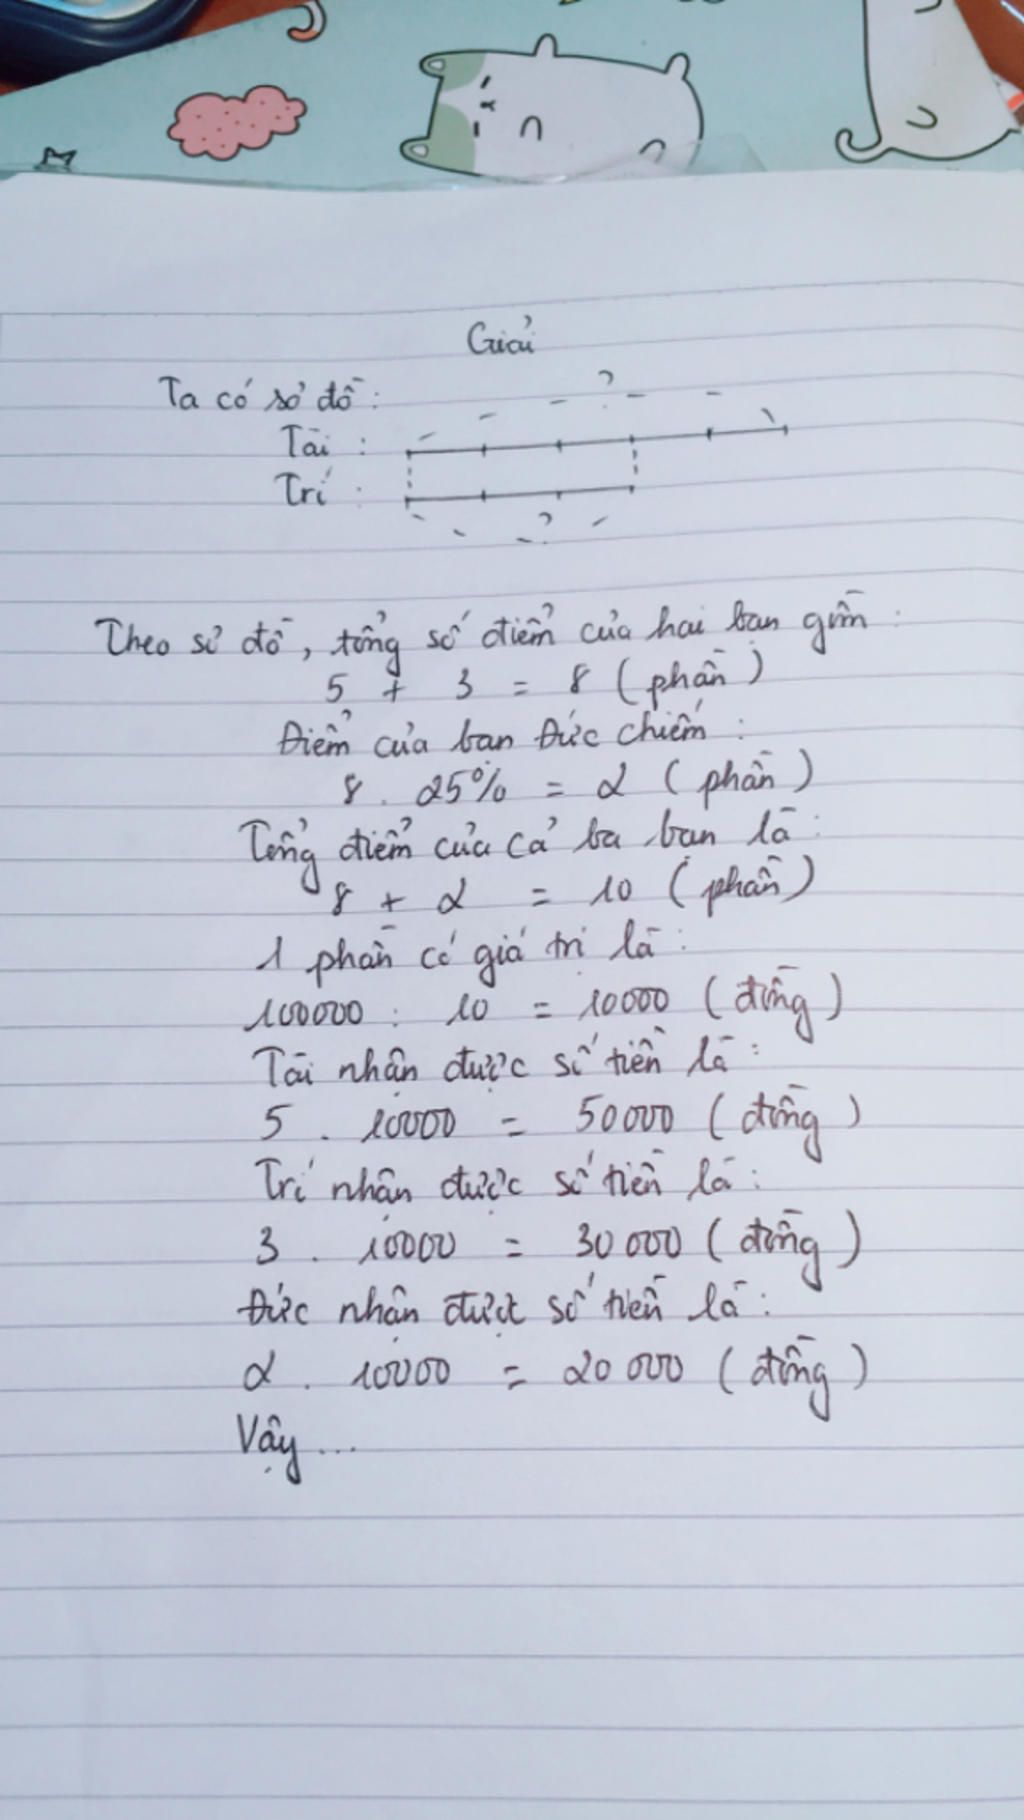 Giải
Ta có sơ đồ:
?
Tài :
Trí :
?
Theo sơ đồ, tổng số điểm của hai bạn gồm :
5 + 3 = 8 ( phần )
Điểm của bạn Đức chiếm :
8 . 25% = 2 ( phần )
Tổng điểm của cả ba bạn là :
8 + 2 = 10 ( phần )
1 phần có giá trị là :
100000 : 10 = 10000 ( đồng )
Tài nhận được số tiền là :
5 . 10000 = 50000 ( đồng )
Trí nhận được số tiền là :
3 . 10000 = 30 000 ( đồng )
Đức nhận được số tiền là :
2 . 10000 = 20 000 ( đồng )
Vậy ...